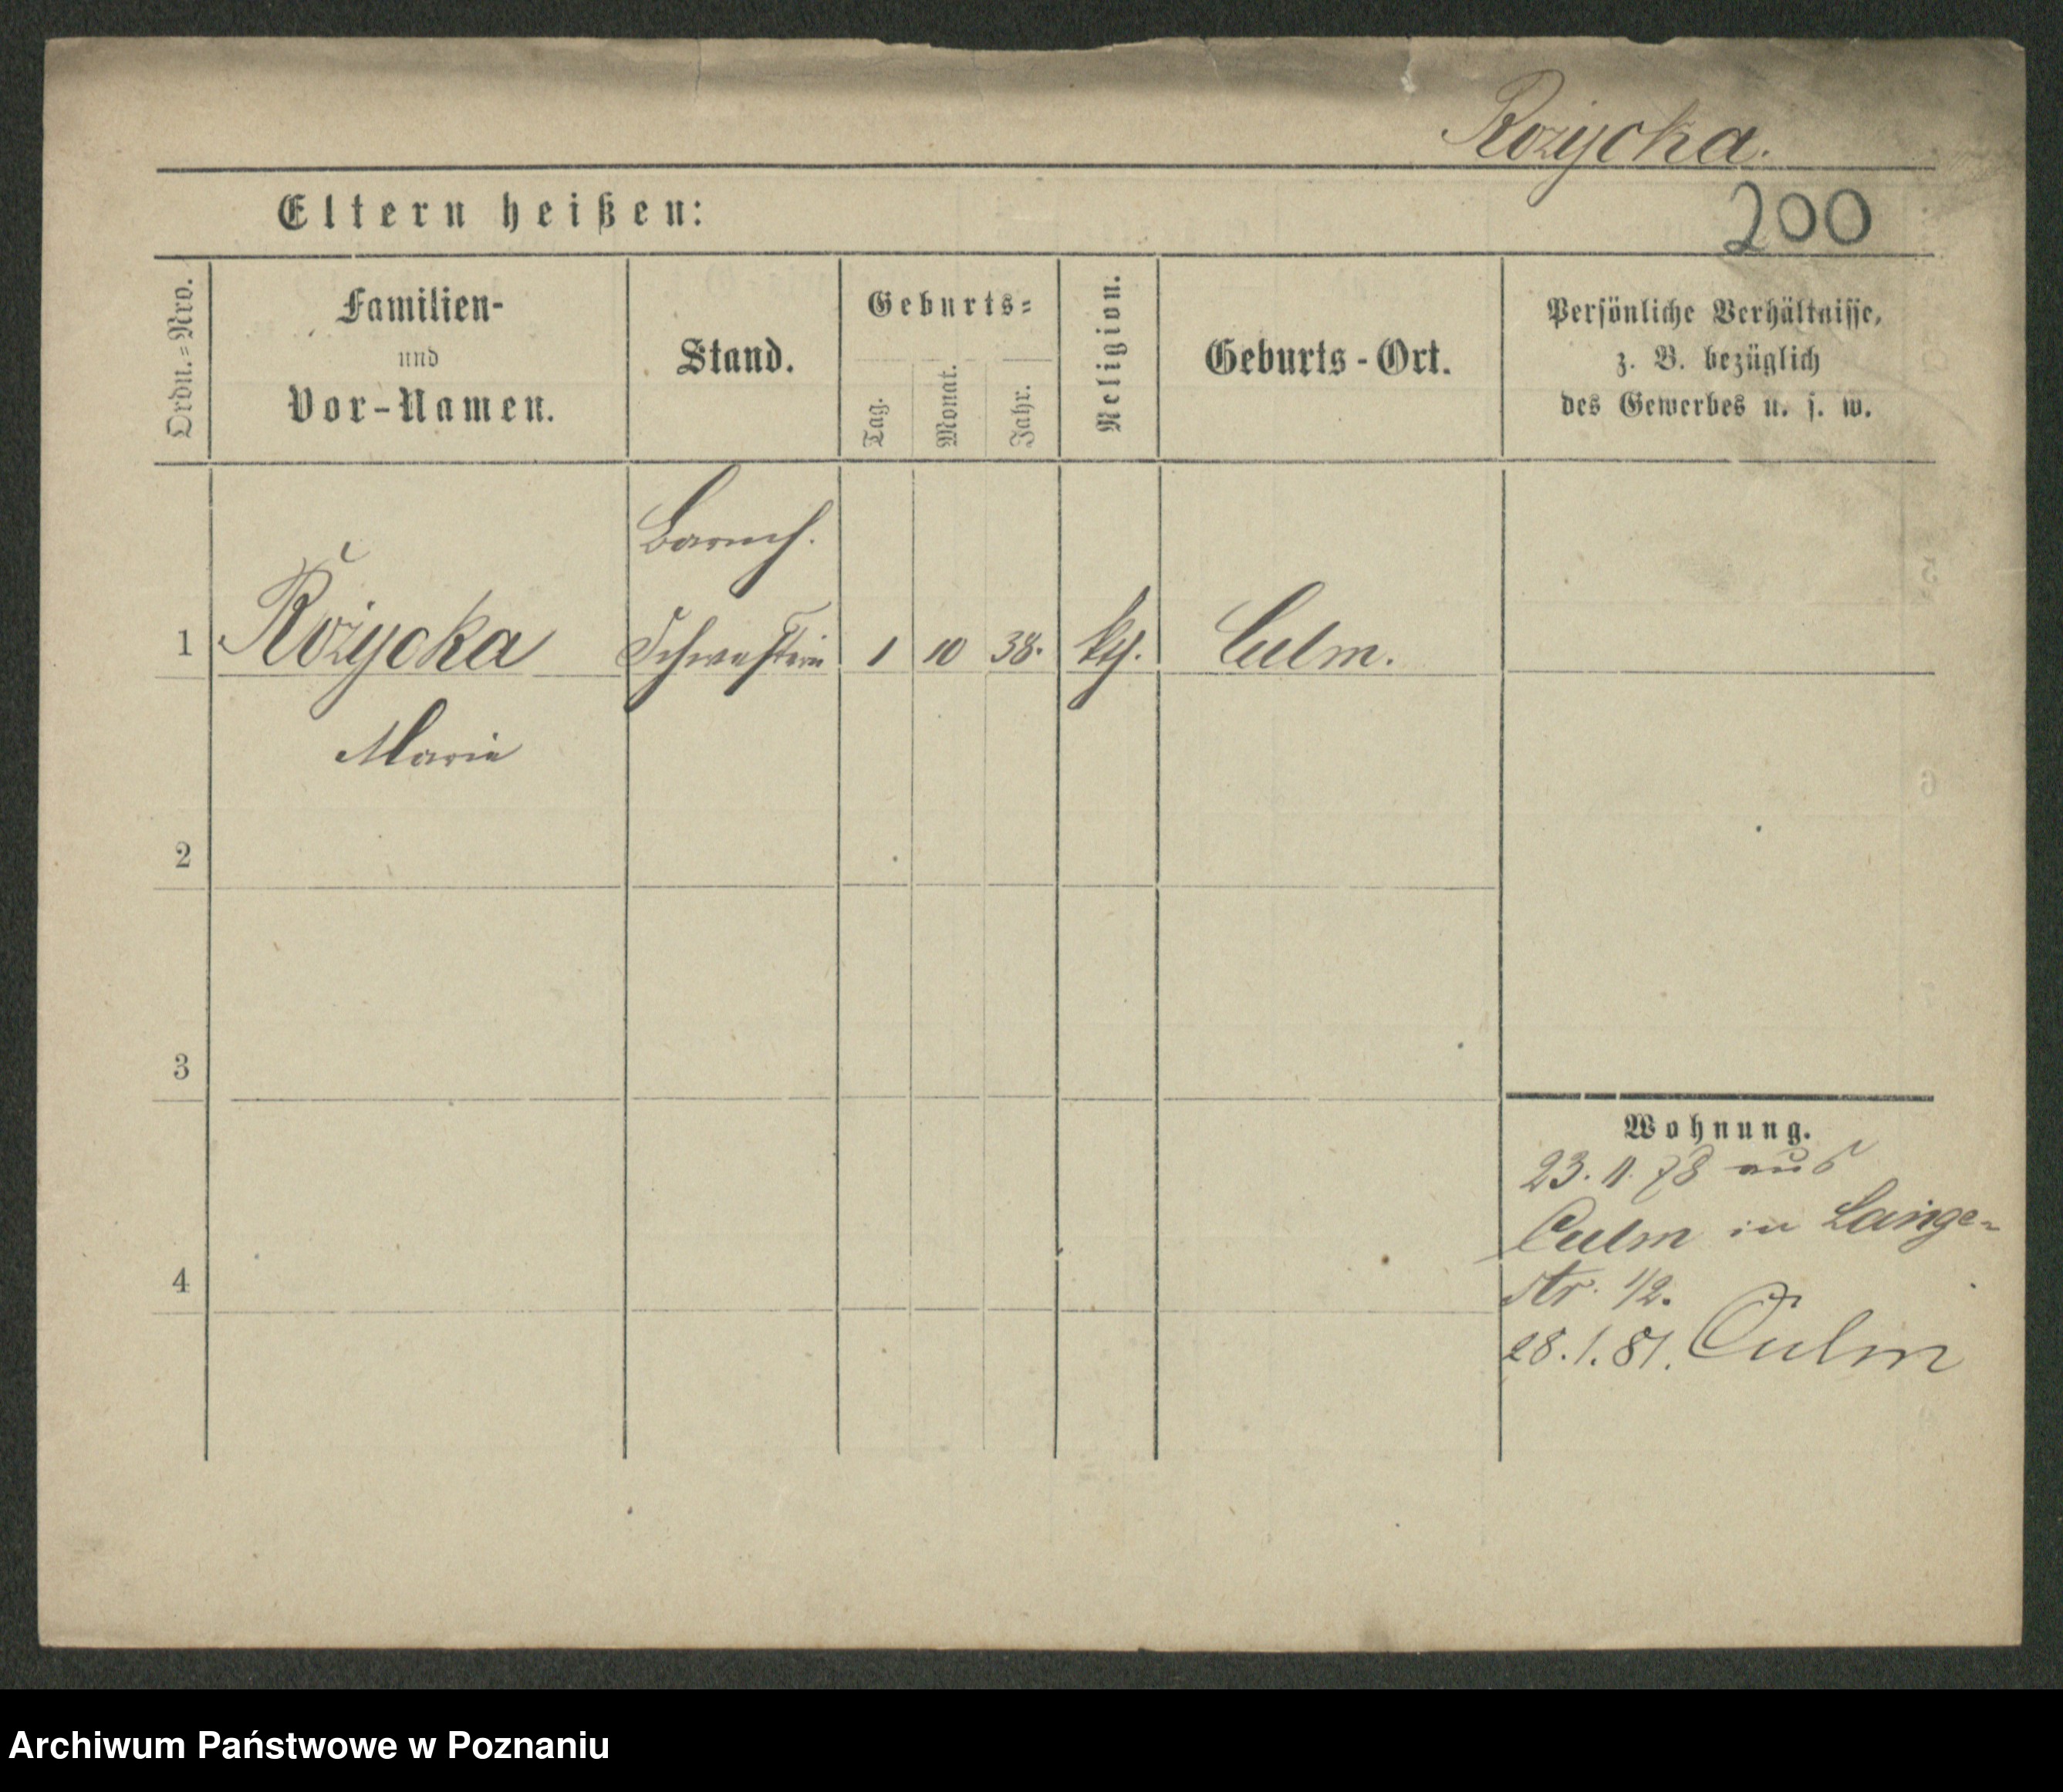 Rozycka.
Eltern heißen:
200
Ordn.=Nro.
Familien-
und
Vor-Namen.
Stand.
Geburts=
Tag.
Monat.
Jahr.
Religion.
Geburts-Ort.
Persönliche Verhältnisse,
z. B. bezüglich
des Gewerbes u. s. w.
Barmh.
1 Rożycka Schwester 1 10 38. kth. Culm.
Marie
2
3
Wohnung.
23. 11. 78 aus
Culm in Lange-
str. 1/2.
4
28.1.81. Culm
Archiwum Państwowe w Poznaniu